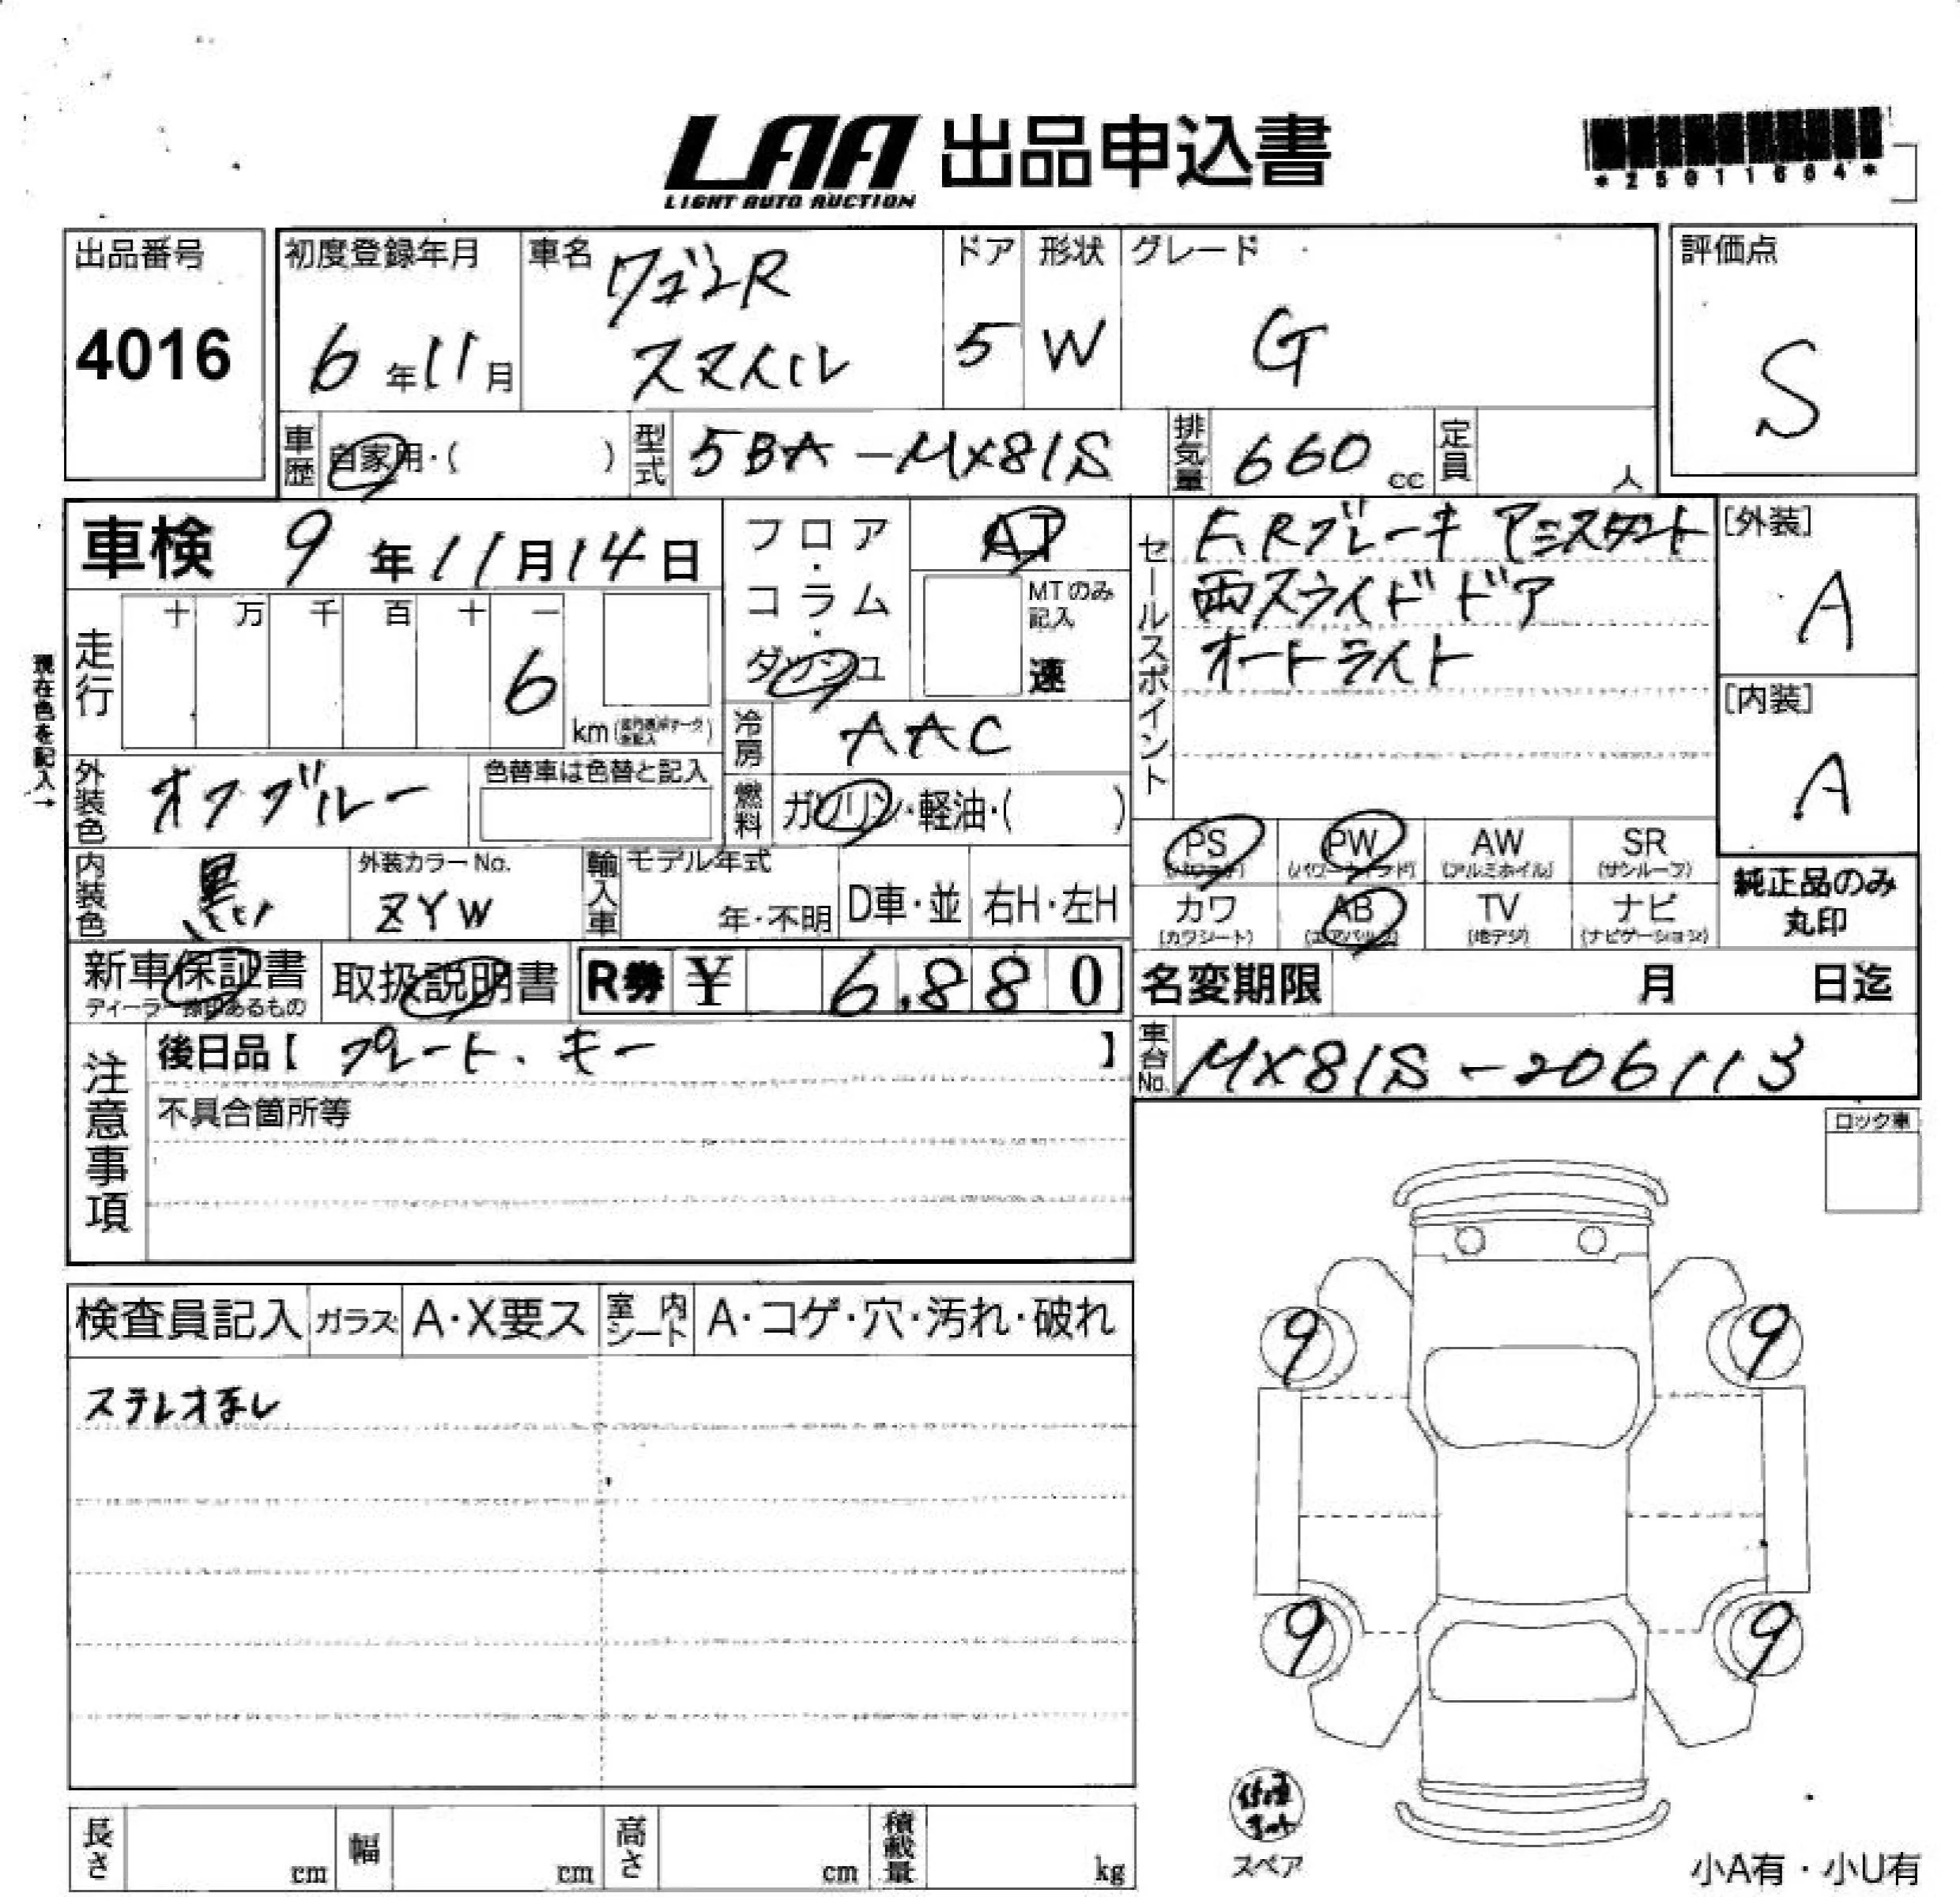 LAA 出品申込書
LIGHT AUTO AUCTION
出品番号
4016
初度登録年月
6年11月
車名
ワゴンR
スマイル
ドア
5
形状
W
グレード
G
評価点
S
車歴
自家用・( )
型式
5BA-MX81S
排気量
660 cc
定員
人
車検 9年11月14日
フロア・コラム・ダッシュ
AT
MTのみ記入
速
セールスポイント
F,Rブレーキ アシスタント
両スライドドア
オートライト
[外装]
A
[内装]
A
現在色を記入→
走行
十 万 千 百 十 一
6
km
冷房
AAC
外装色
オフブルー
色替車は色替と記入
燃料
ガソリン・軽油・( )
PS
AW
(アルミホイル)
SR
(サンルーフ)
PW
(パワーウインド)
カワ
(カワシート)
AB
(エアバック)
TV
(地デジ)
ナビ
(ナビゲーション)
純正品のみ
丸印
内装色
黒
外装カラーNo.
ZYW
輸入車
モデル年式
年・不明
D車・並
右H・左H
新車保証書
取扱説明書
R券 ¥ 6,880
名変期限 月 日迄
車台No.
MX81S-206113
注意事項
後日品【 プレート、キー 】
不具合箇所等
ロック車
検査員記入
ガラス
A・X要ス
室内シート
A・コゲ・穴・汚れ・破れ
ステレオ無し
9 9
9 9
スペア
小A有・小U有
長さ cm
幅 cm
高さ cm
積載量 kg